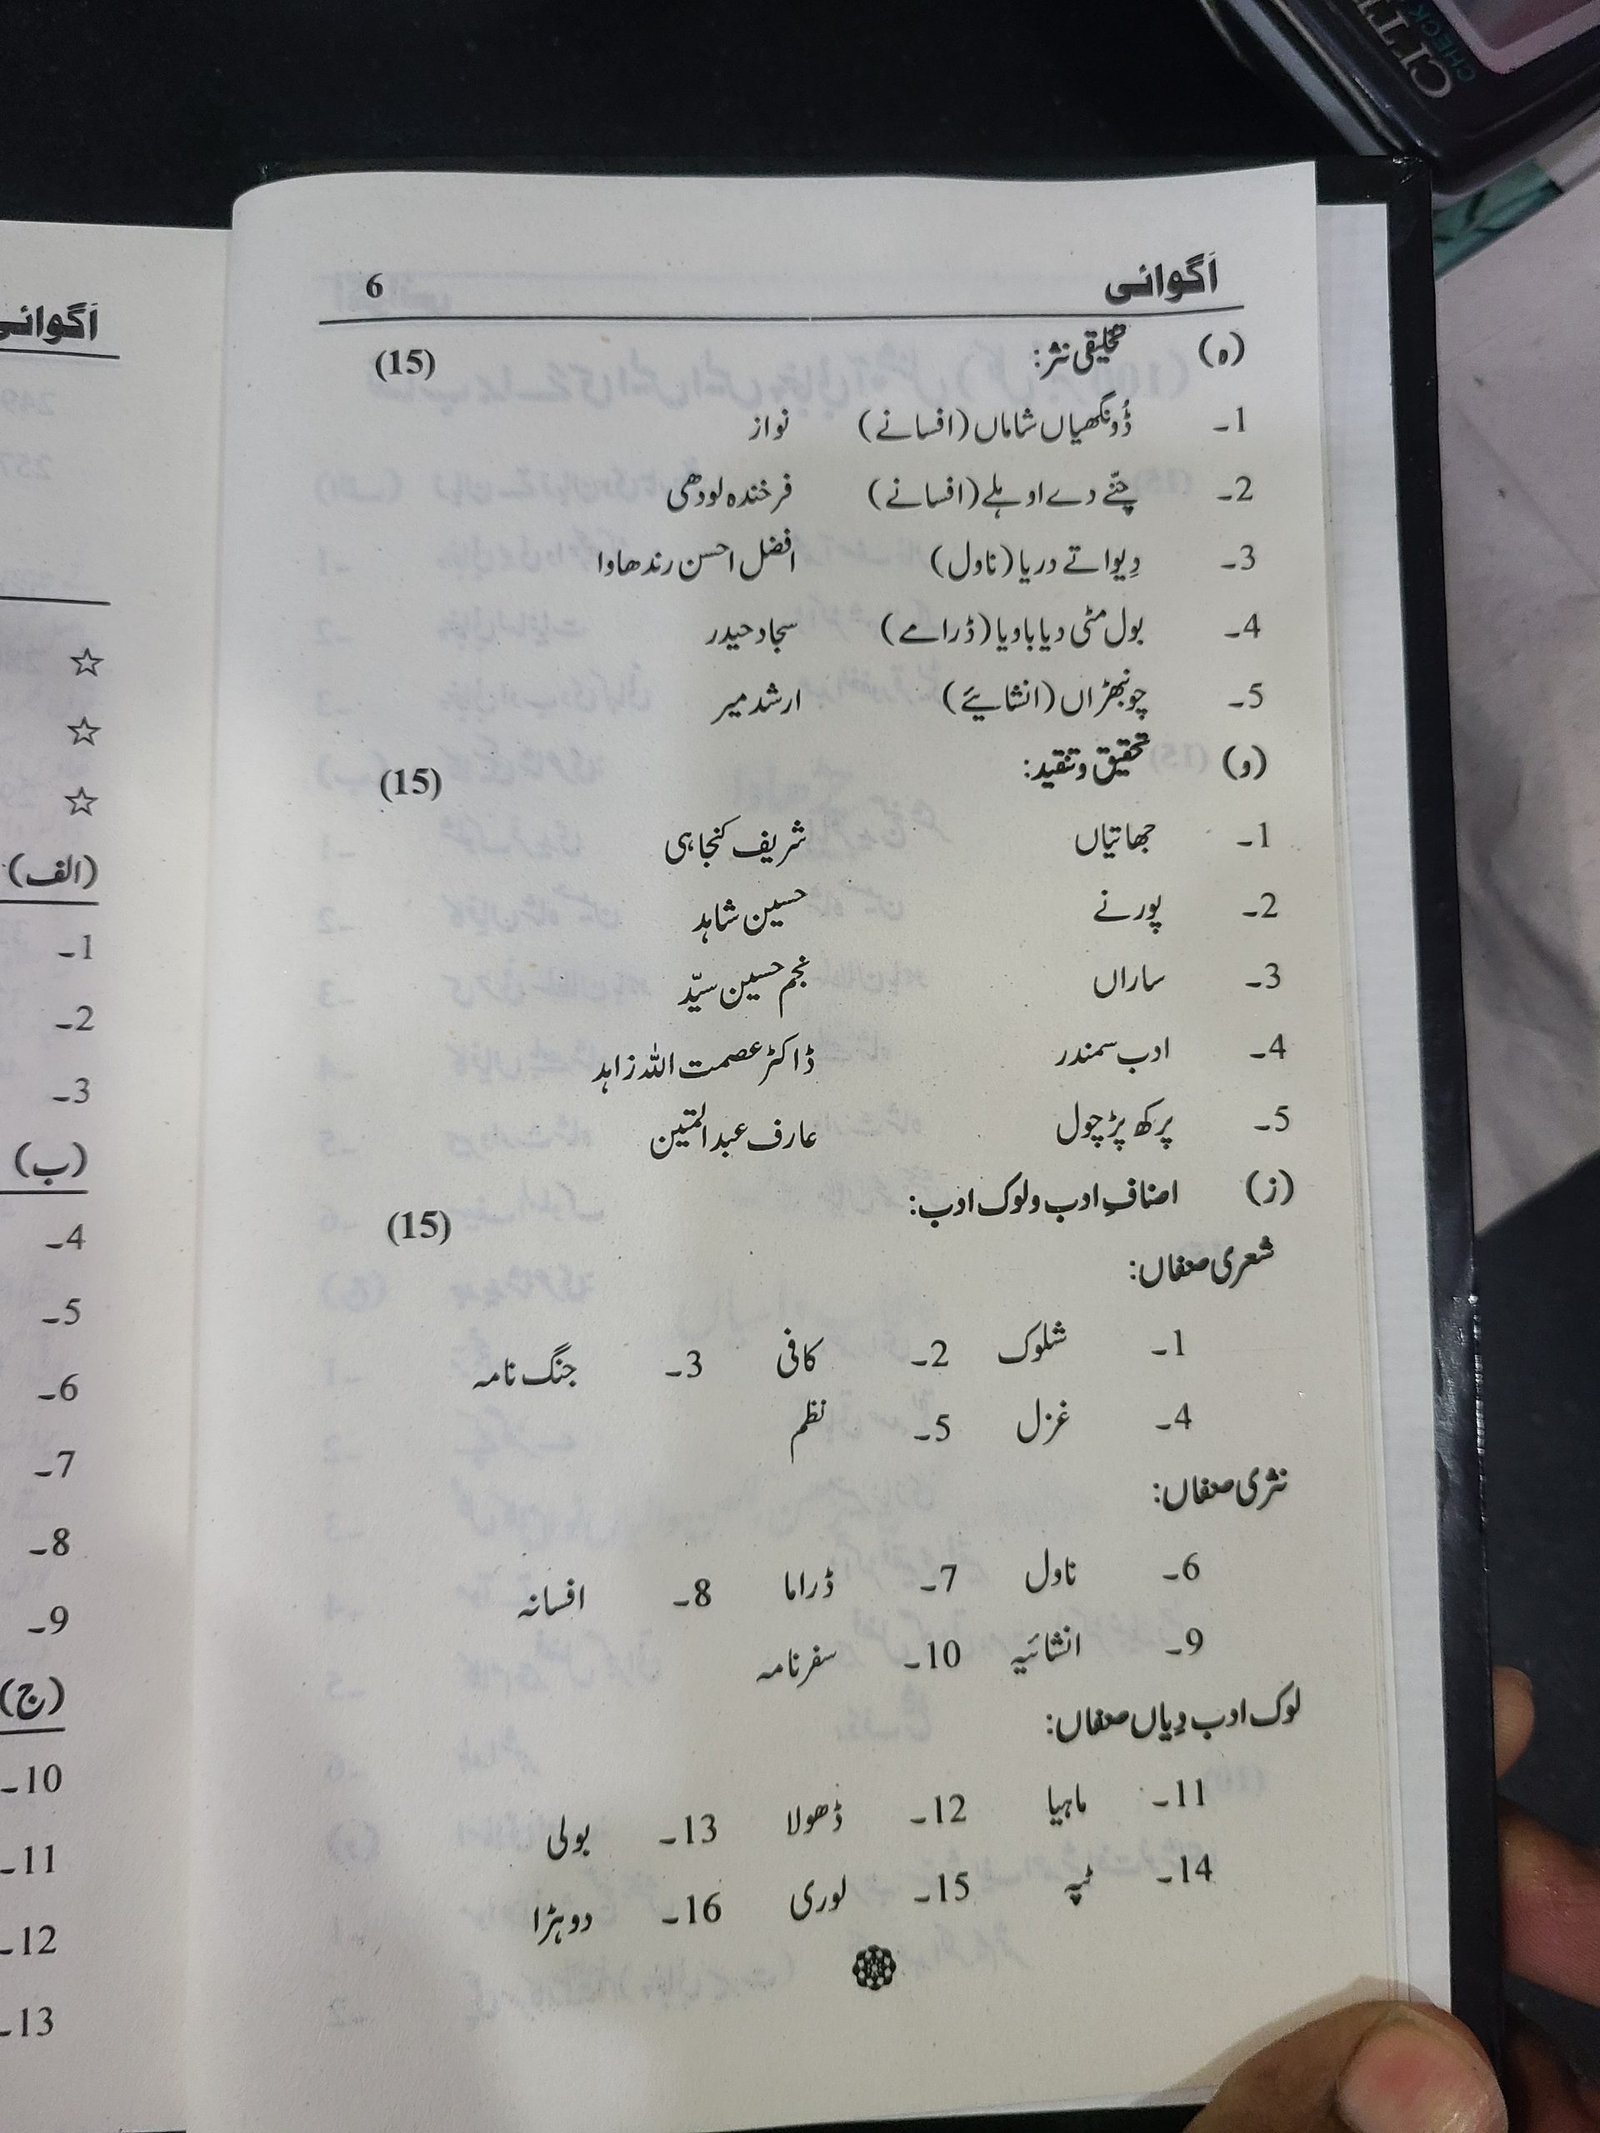 اَگوائی 6
(ہ) تخلیقی نثر: (15)
1۔ ڈُونگھیاں شاماں (افسانے) نواز
2۔ چنّے دے اوہلے (افسانے) فرخندہ لودھی
3۔ دِیوا تے دریا (ناول) افضل احسن رندھاوا
4۔ بول مٹی دیا باویا (ڈرامے) سجاد حیدر
5۔ چونبھڑاں (انشائیے) ارشد میر
(و) تحقیق و تنقید: (15)
1۔ جھاتیاں شریف کنجاہی
2۔ پورنے حسین شاہد
3۔ ساراں نجم حسین سیّد
4۔ ادب سمندر ڈاکٹر عصمت اللہ زاہد
5۔ پرکھ پڑچول عارف عبدالمتین
(ز) اصنافِ ادب و لوک ادب: (15)
شعری صنفاں:
1۔ شلوک 2۔ کافی 3۔ جنگ نامہ
4۔ غزل 5۔ نظم
نثری صنفاں:
6۔ ناول 7۔ ڈراما 8۔ افسانہ
9۔ انشائیہ 10۔ سفرنامہ
لوک ادب دِیاں صنفاں:
11۔ ماہیا 12۔ ڈھولا 13۔ بولی
14۔ ٹپہ 15۔ لوری 16۔ دوہڑا
اَگوائی
(الف)
1۔
2۔
3۔
(ب)
4۔
5۔
6۔
7۔
8۔
9۔
(ج)
10۔
11۔
12۔
13۔